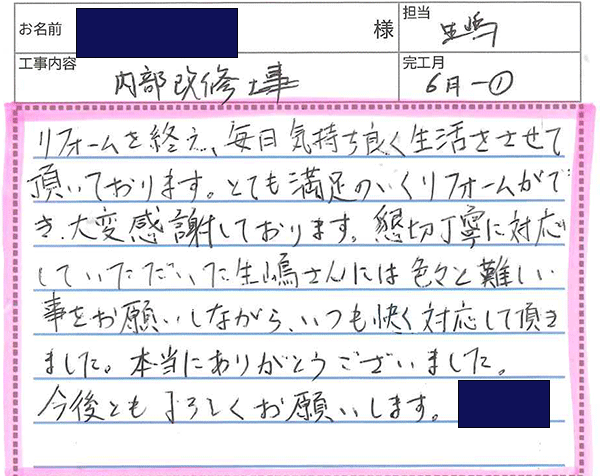 お名前 様 担当 生嶋
工事内容 内部改修工事 完工月 6月-①
リフォームを終え、毎日気持ち良く生活をさせて
頂いております。とても満足のいくリフォームがで
き、大変感謝しております。懇切丁寧に対応
していただいた生嶋さんには色々と難しい
事をお願いしながら、いつも快く対応して頂き
ました。本当にありがとうございました。
今後ともよろしくお願いします。